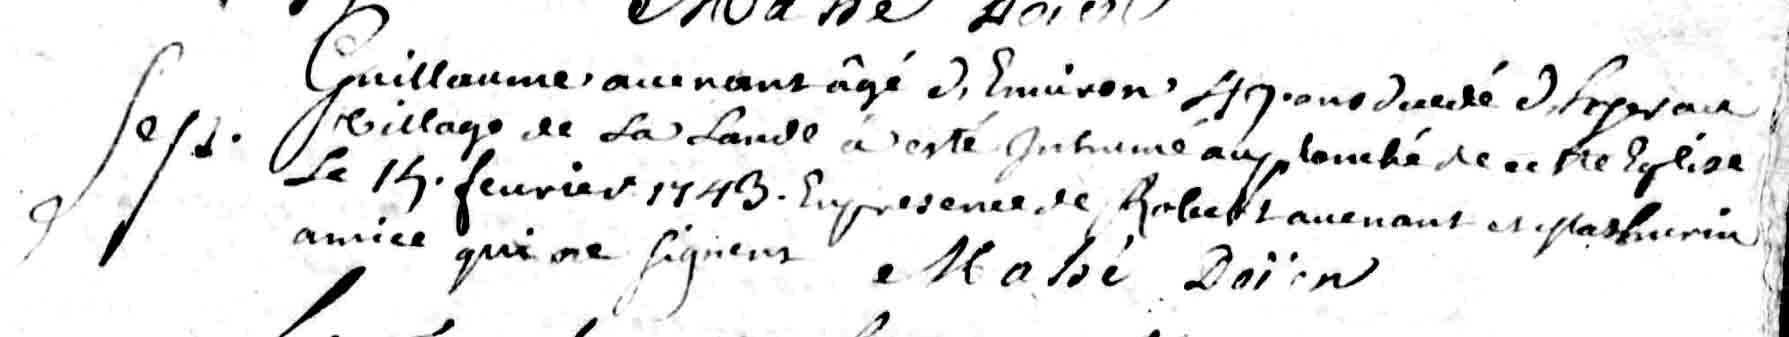 Masse Doien
Guillaume auenant âgé d, Enuiron 47. ans decedé d,hyer au
Sep. Village de La Lande à esté Inhumé au bouché de cette Eglise
Le 15. feurier 1743. En presence de Robert auenant et Mathurin
amice qui ne signent Massé Doïen